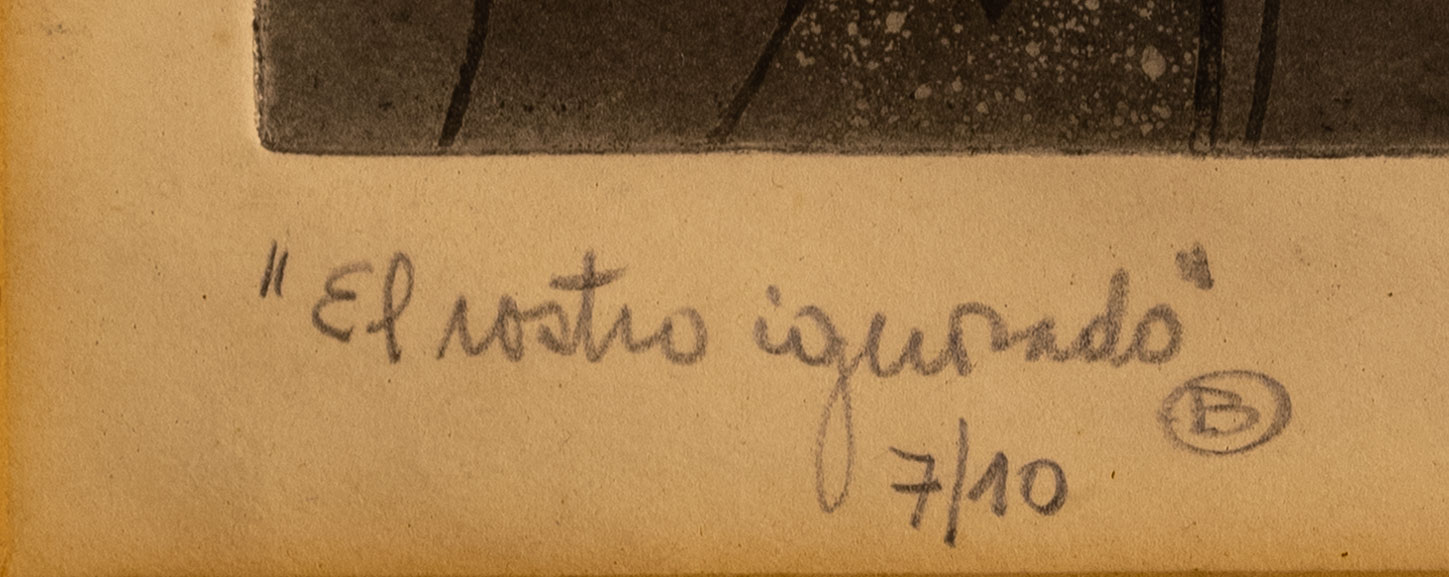 "El rostro ignorado"
B
7/10